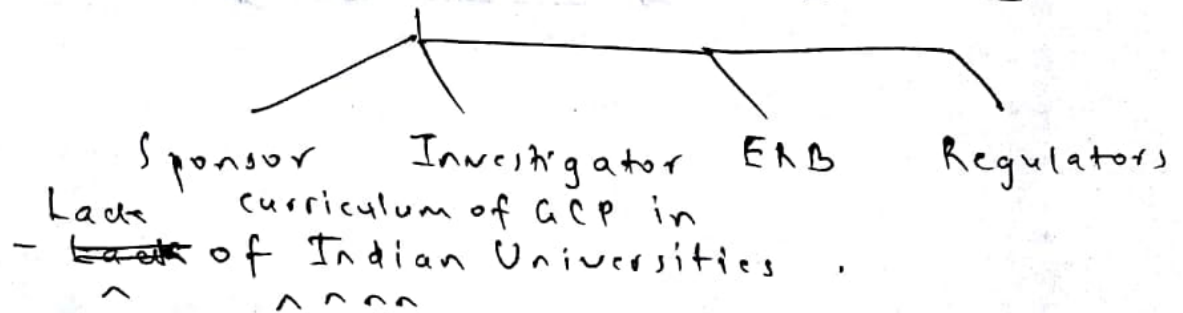 Sponsor Investigator ERB Regulators
Lack curriculum of GCP in
- of Indian Universities .